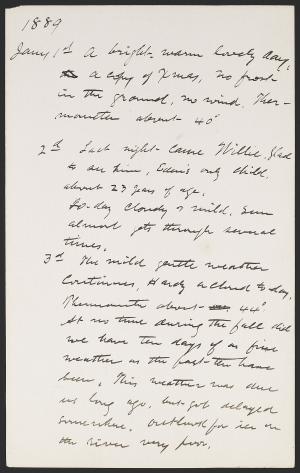 1889
Jany 1st A bright warm lovely day,
a copy of Xmas, no frost
in the ground, no wind. Ther-
mometer about 40°
2d Last night came Willie. Glad
to see him, Eden's only child.
about 23 years of age.
To-day cloudy & mild. Sun
almost gets through several
times.
3d The mild gentle weather
continues, Hardly a cloud to-day.
Thermometer about 44°
At no time during the fall did
we have ten days of as fine
weather as the past ten have
been. This weather was due
us long ago, but got delayed
somewhere. Outlook for ice on
the river very poor.